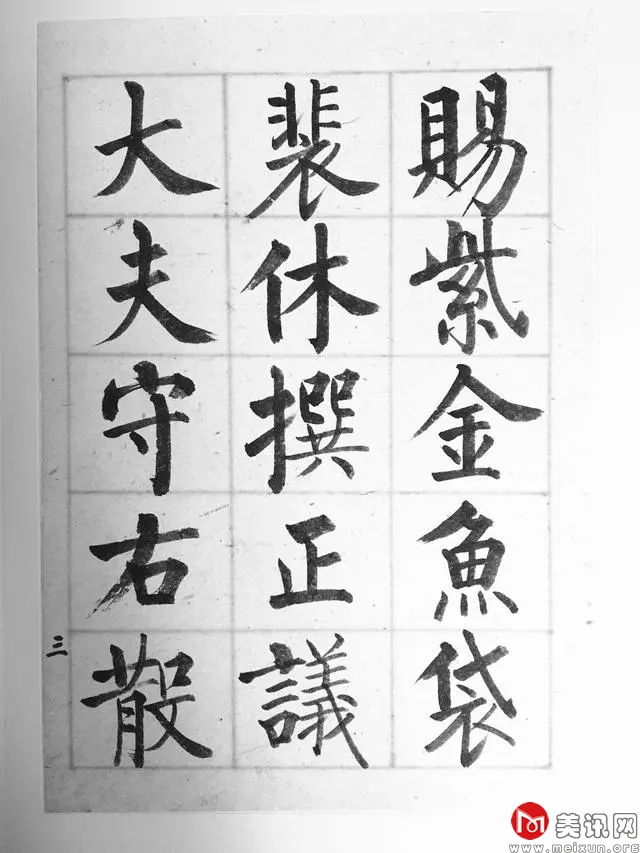 賜紫金魚袋
裴休撰正議
大夫守右散
三
美讯网
www.meixun.org